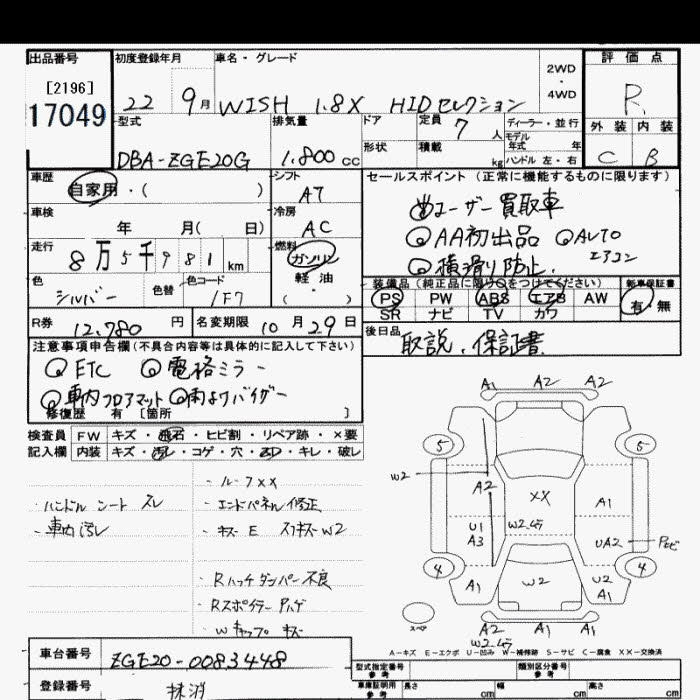 出品番号 初度登録年月 車名・グレード 2WD・4WD 評価点
[2196]
17049
22 9月 WISH 1.8X HIDセレクション R
型式 排気量 ドア 定員 7人 ディーラー・並行 外装 内装
モデル年式 年
形状 積載 kg ハンドル 左・右
DBA-ZGE20G 1.800 cc C B
車歴 シフト セールスポイント (正常に機能するものに限ります)
自家用・( ) AT
ユーザー買取車
車検 冷房
年 月( 日) AC
AA初出品 AUTOエアコン
走行 燃料
8万5千981km ガソリン
横滑り防止.
軽油
・( )
色 色替 色コード
シルバー 1F7
装備品(純正品に限り○をつけてください) 新車保証書
PS PW ABS エアB AW 有・無
SR ナビ TV カワ
R券 12,780円 名変期限 10月29日
後日品 取説.保証書
注意事項申告欄(不具合内容等は具体的に記入して下さい)
ETC 電格ミラー
車内フロアマット 雨よけバイザー
修復歴 有 [箇所 ]
検査員 FW キズ・飛石・ヒビ割・リペア跡・×要
記入欄 内装 キズ・汚レ・コゲ・穴・スレ・キレ・破レ
・ルーフXX
・ハンドル シート スレ ・エンドパネル修正
・車内汚レ ・キズ E スリキズ W2
・Rハッチダンパー不良
・Rスポイラー
・Wキャップ キズ
A1 A2 A2
5 5
W2 A2 XX A1
U1 A3 W2 UA2
4 4
A1 W2 U2 A1
スペア A2 A1 A1
W2
A-キズ E-エクボ U-凹み W-補修跡 S-サビ C-腐食 XX-交換済
車台番号 ZGE20-0083448
型式指定番号 参考 類別区分番号 参考
登録番号 抹消
車庫証明用 参考 長さ cm 幅 cm 高さ cm